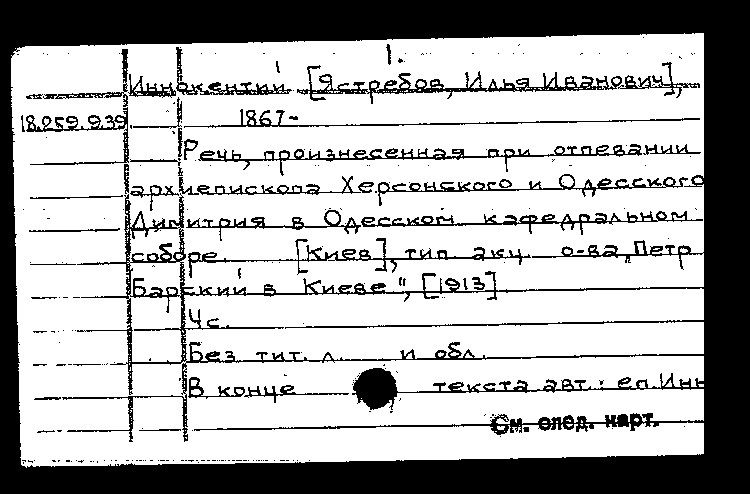 1.
Иннокентий [Ястребов, Илья Иванович],
18.259.9.39 1867-
Речь, произнесенная при отпевании
архиепископа Херсонского и Одесского
Димитрия в Одесском кафедральном
соборе. [Киев], тип. акц. о-ва „Петр
Барский в Киеве", [1913].
4 с.
Без тит. л. и обл.
В конце текста авт.: еп. Инн
См. след. карт.